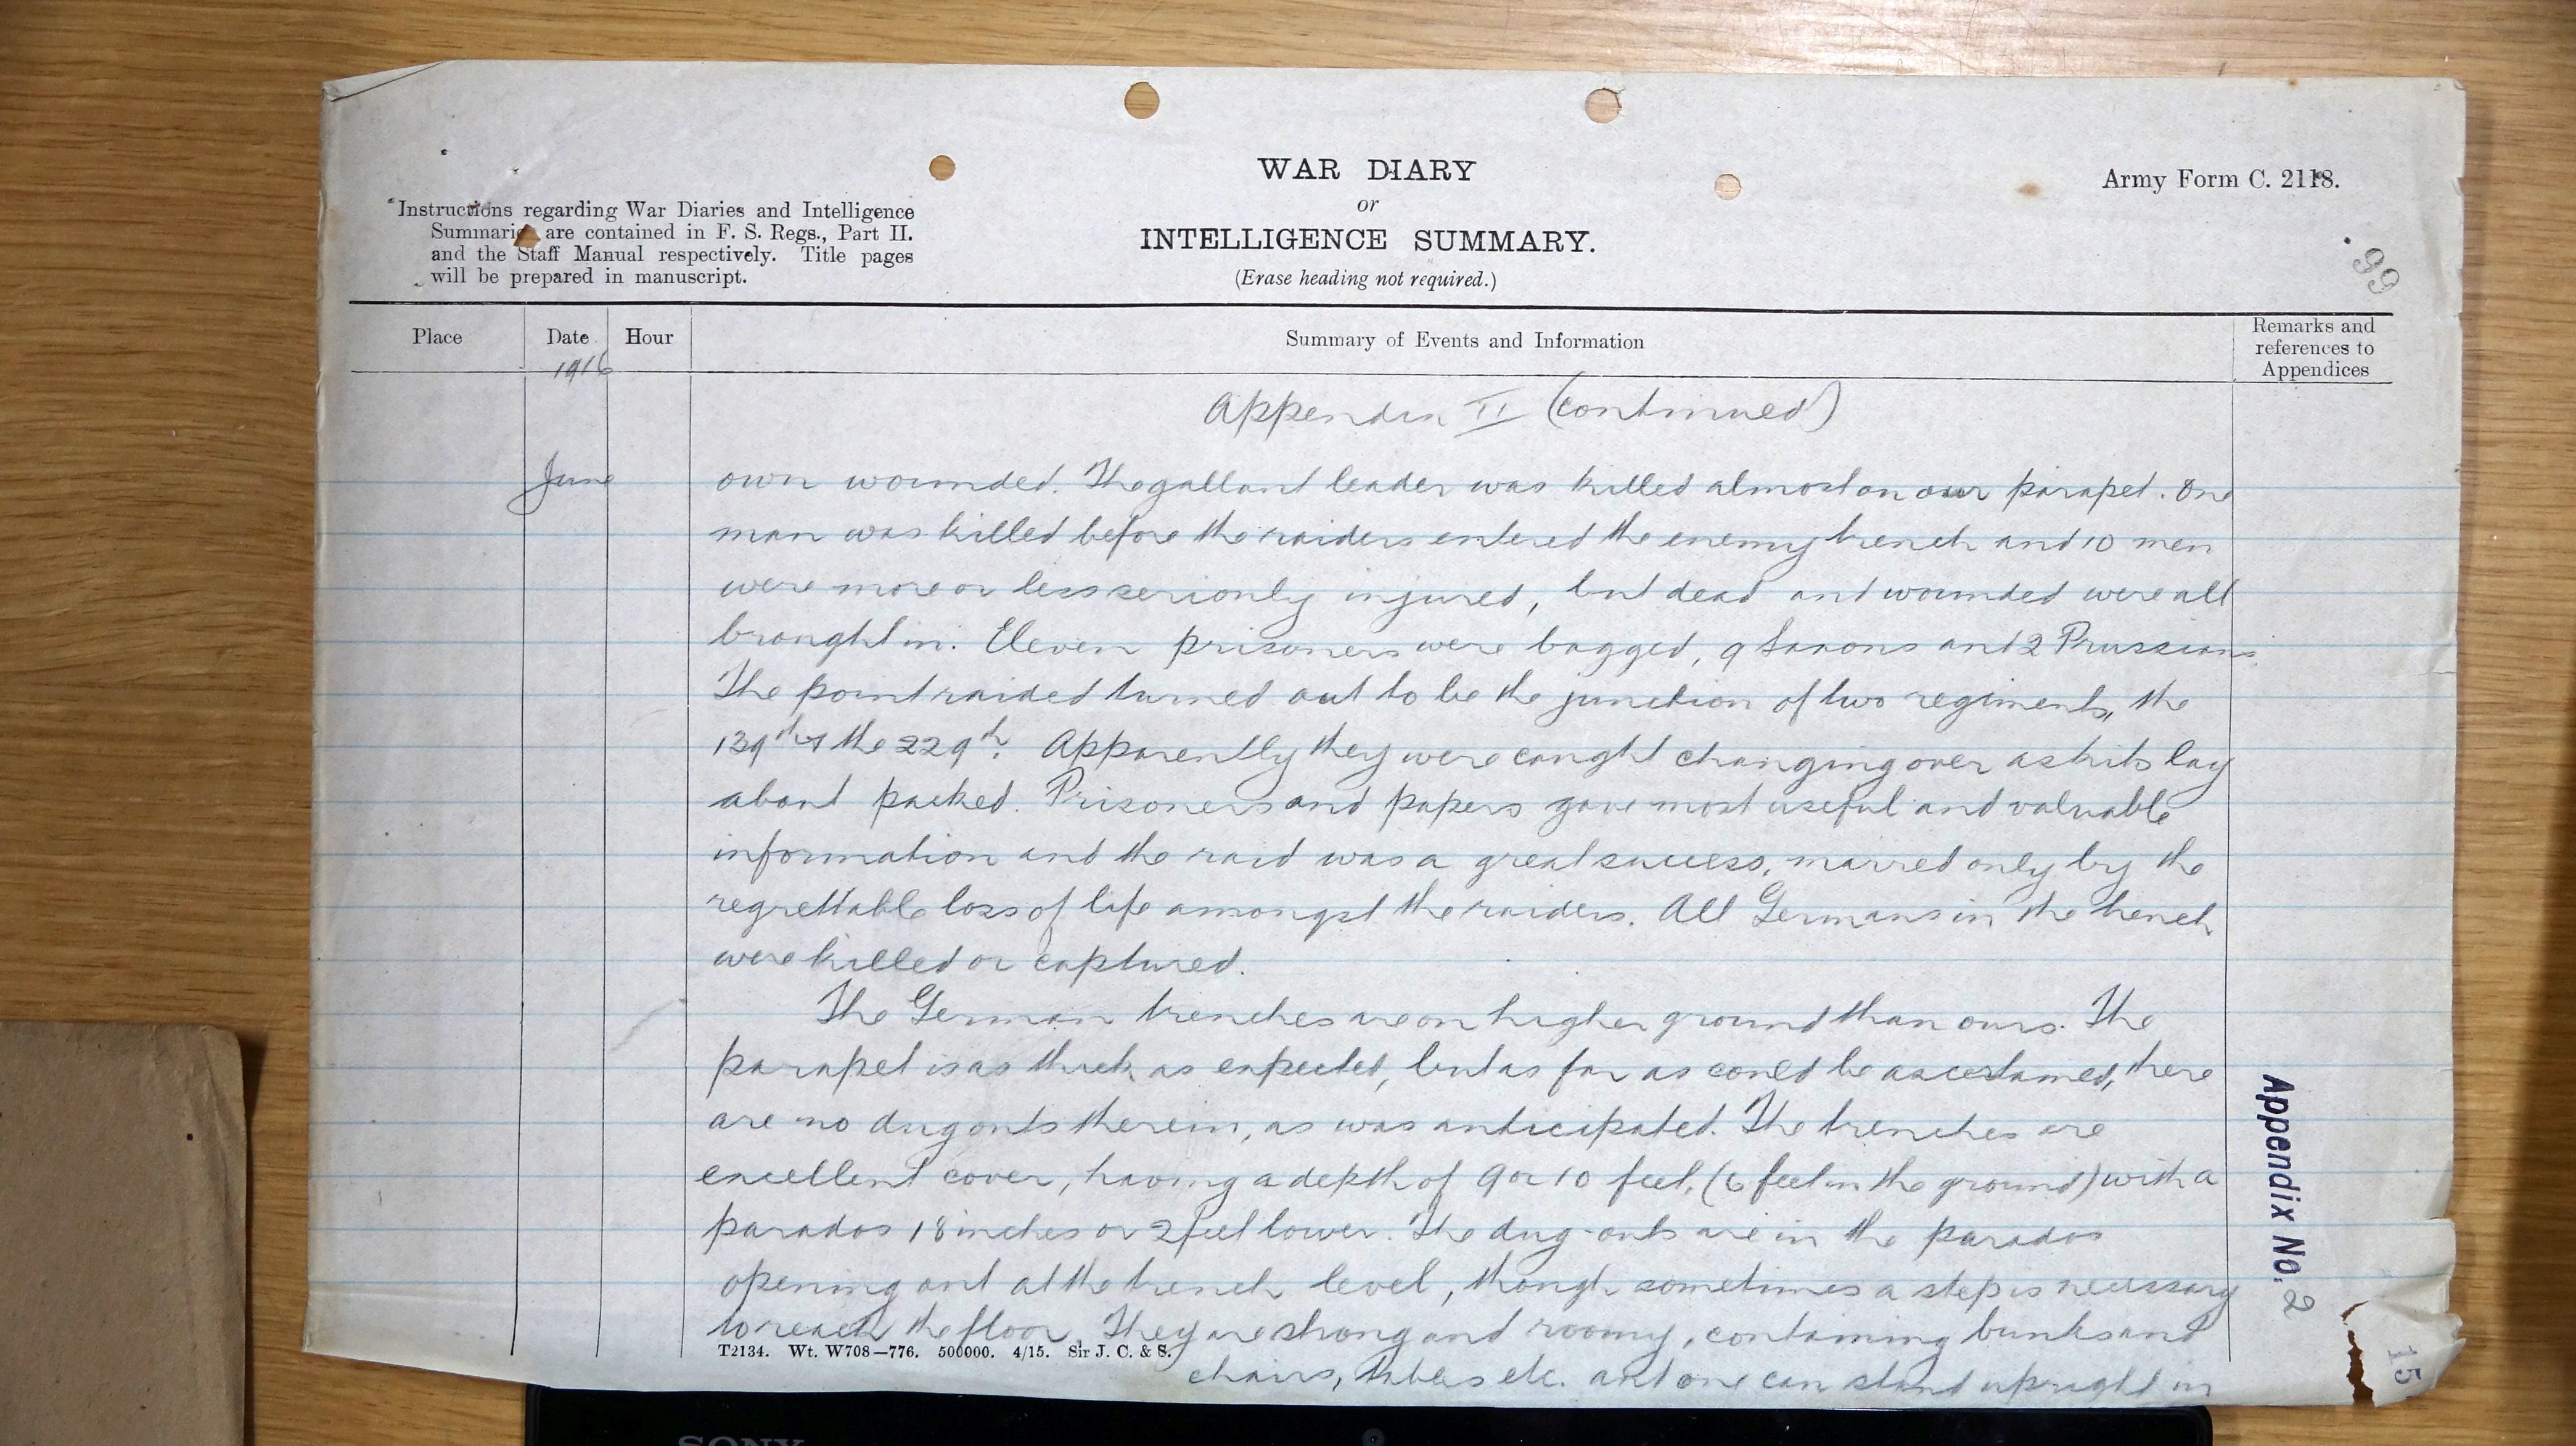 WAR DIARY
or
INTELLIGENCE SUMMARY.
(Erase heading not required.)
Army Form C. 2118.
Instructions regarding War Diaries and Intelligence
Summaries are contained in F. S. Regs., Part II.
and the Staff Manual respectively. Title pages
will be prepared in manuscript.
99
Place
Date
1916
Hour
Summary of Events and Information
Remarks and
references to
Appendices
Appendix II (continued)
June
own wounded. The gallant leader was killed almost on our parapet. One
man was killed before the raiders entered the enemy trench and 10 men
were more or less seriously injured, but dead and wounded were all
brought in. Eleven prisoners were bagged, 9 Saxons and 2 Prussians.
The point raided turned out to be the junction of two regiments, the
139th & the 229th. Apparently they were caught changing over as kits lay
about packed. Prisoners and papers gave most useful and valuable
information and the raid was a great success, marred only by the
regrettable loss of life amongst the raiders. All Germans in the trench
were killed or captured.
The German trenches are on higher ground than ours. The
parapet is as thick as expected, but as far as could be ascertained, there
are no dugouts therein, as was anticipated. The trenches are
excellent cover, having a depth of 9 or 10 feet, (6 feet in the ground) with a
parados 18 inches or 2 feet lower. The dug-outs are in the parados
opening out at the trench level, though sometimes a step is necessary
to reach the floor. They are strong and roomy, containing bunks and
T2134. Wt. W708—776. 500000. 4/15. Sir J. C. & S.
chairs, tables etc. and one can stand upright in
Appendix No. 2
15
SONY